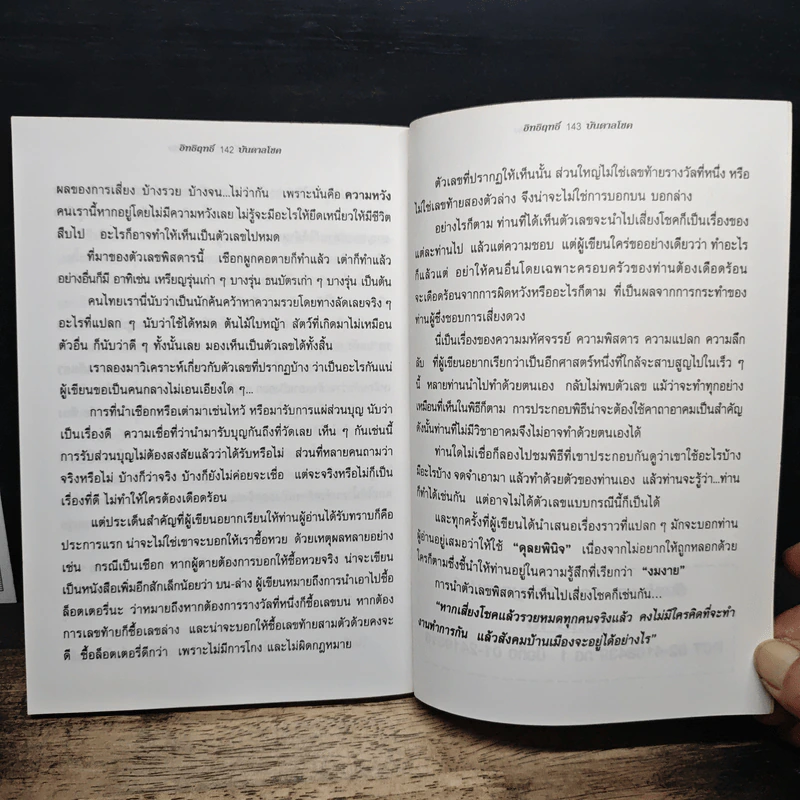 อิทธิฤทธิ์ 142 บันดาลโชค
ผลของการเสี่ยง บ้างรวย บ้างจน...ไม่ว่ากัน เพราะนั่นคือ ความหวัง
คนเรานี้หากอยู่โดยไม่มีความหวังเลย ไม่รู้จะมีอะไรให้ยึดเหนี่ยวให้มีชีวิต
สืบไป อะไรก็อาจทำให้เห็นเป็นตัวเลขไปหมด
ที่มาของตัวเลขพิสดารนี้ เชือกผูกคอตายก็ทำแล้ว เต่าก็ทำแล้ว
อย่างอื่นก็มี อาทิเช่น เหรียญรุ่นเก่า ๆ บางรุ่น ธนบัตรเก่า ๆ บางรุ่น เป็นต้น
คนไทยเรานี้นับว่าเป็นนักค้นคว้าหาความรวยโดยทางลัดเลยจริง ๆ
อะไรที่แปลก ๆ นับว่าใช้ได้หมด ต้นไม้ใบหญ้า สัตว์ที่เกิดมาไม่เหมือน
ตัวอื่น ก็นับว่าดี ๆ ทั้งนั้นเลย มองเห็นเป็นตัวเลขได้ทั้งสิ้น
เราลองมาวิเคราะห์เกี่ยวกับตัวเลขที่ปรากฏบ้าง ว่าเป็นอะไรกันแน่
ผู้เขียนขอเป็นคนกลางไม่เอนเอียงใด ๆ...
การที่นำเชือกหรือเต่ามาเช่นไหว้ หรือมารับการแผ่ส่วนบุญ นับว่า
เป็นเรื่องดี ความเชื่อที่ว่านำมารับบุญกันถึงที่วัดเลย เห็น ๆ กันเช่นนี้
การรับส่วนบุญไม่ต้องสงสัยแล้วว่าได้รับหรือไม่ ส่วนที่หลายคนถามว่า
จริงหรือไม่ บ้างก็ว่าจริง บ้างก็ยังไม่ค่อยจะเชื่อ แต่จะจริงหรือไม่ก็เป็น
เรื่องที่ดี ไม่ทำให้ใครต้องเดือดร้อน
แต่ประเด็นสำคัญที่ผู้เขียนอยากเรียนให้ท่านผู้อ่านได้รับทราบก็คือ
ประการแรก น่าจะไม่ใช่เขาจะบอกให้เราซื้อหวย ด้วยเหตุผลหลายอย่าง
เช่น กรณีเป็นเชือก หากผู้ตายต้องการจะบอกให้ซื้อหวยจริง น่าจะเขียน
เป็นหนังสือเพิ่มอีกสักเล็กน้อยว่า บน-ล่าง ผู้เขียนหมายถึงการนำเอาไปซื้อ
ล็อตเตอรี่นะ ว่าหมายถึงหากต้องการรางวัลที่หนึ่งก็ซื้อเลขบน หากต้อง
การเลขท้ายก็ซื้อเลขล่าง และน่าจะบอกให้ซื้อเลขท้ายสามตัวด้วยคงจะ
ดี ซื้อล็อตเตอรี่ดีกว่า เพราะไม่มีการโกง และไม่ผิดกฎหมาย
อิทธิฤทธิ์ 143 บันดาลโชค
ตัวเลขที่ปรากฏให้เห็นนั้น ส่วนใหญ่ไม่ใช่เลขท้ายรางวัลที่หนึ่ง หรือ
ไม่ใช่เลขท้ายสองตัวล่าง จึงน่าจะไม่ใช่การบอกบน บอกล่าง
อย่างไรก็ตาม ท่านที่ได้เห็นตัวเลขจะนำไปเสี่ยงโชคก็เป็นเรื่องของ
แต่ละท่านไป แล้วแต่ความชอบ แต่ผู้เขียนใคร่ขออย่างเดียวว่า ทำอะไร
ก็แล้วแต่ อย่าให้คนอื่นโดยเฉพาะครอบครัวของท่านต้องเดือดร้อน
จะเดือดร้อนจากการผิดหวังหรืออะไรก็ตาม ที่เป็นผลจากการกระทำของ
ท่านผู้ซึ่งชอบการเสี่ยงดวง
นี่เป็นเรื่องของความมหัศจรรย์ ความพิสดาร ความแปลก ความลึก
ลับ ที่ผู้เขียนอยากเรียกว่าเป็นอีกศาสตร์หนึ่งที่ใกล้จะสาบสูญไปในเร็ว ๆ
นี้ หลายท่านนำไปทำด้วยตนเอง กลับไม่พบตัวเลข แม้ว่าจะทำทุกอย่าง
เหมือนที่เห็นในพิธีก็ตาม การประกอบพิธีน่าจะต้องใช้คาถาอาคมเป็นสำคัญ
ดังนั้นท่านที่ไม่มีวิชาอาคมจึงไม่อาจทำด้วยตนเองได้
ท่านใดไม่เชื่อก็ลองไปชมพิธีที่เขาประกอบกันดูว่าเขาใช้อะไรบ้าง
มีอะไรบ้าง จดจำเอามา แล้วทำด้วยตัวของท่านเอง แล้วท่านจะรู้ว่า...ท่าน
ก็ทำได้เช่นกัน แต่อาจไม่ได้ตัวเลขแบบกรณีนี้ก็เป็นได้
และทุกครั้งที่ผู้เขียนได้นำเสนอเรื่องราวที่แปลก ๆ มักจะบอกท่าน
ผู้อ่านอยู่เสมอว่าให้ใช้ "ดุลยพินิจ" เนื่องจากไม่อยากให้ถูกหลอกด้วย
ใครก็ตามซึ่งชี้นำให้ท่านอยู่ในความรู้สึกที่เรียกว่า "งมงาย"
การนำตัวเลขพิสดารที่เห็นไปเสี่ยงโชคก็เช่นกัน...
"หากเสี่ยงโชคแล้วรวยหมดทุกคนจริงแล้ว คงไม่มีใครคิดที่จะทำ
งานทำการกัน แล้วสังคมบ้านเมืองจะอยู่ได้อย่างไร"